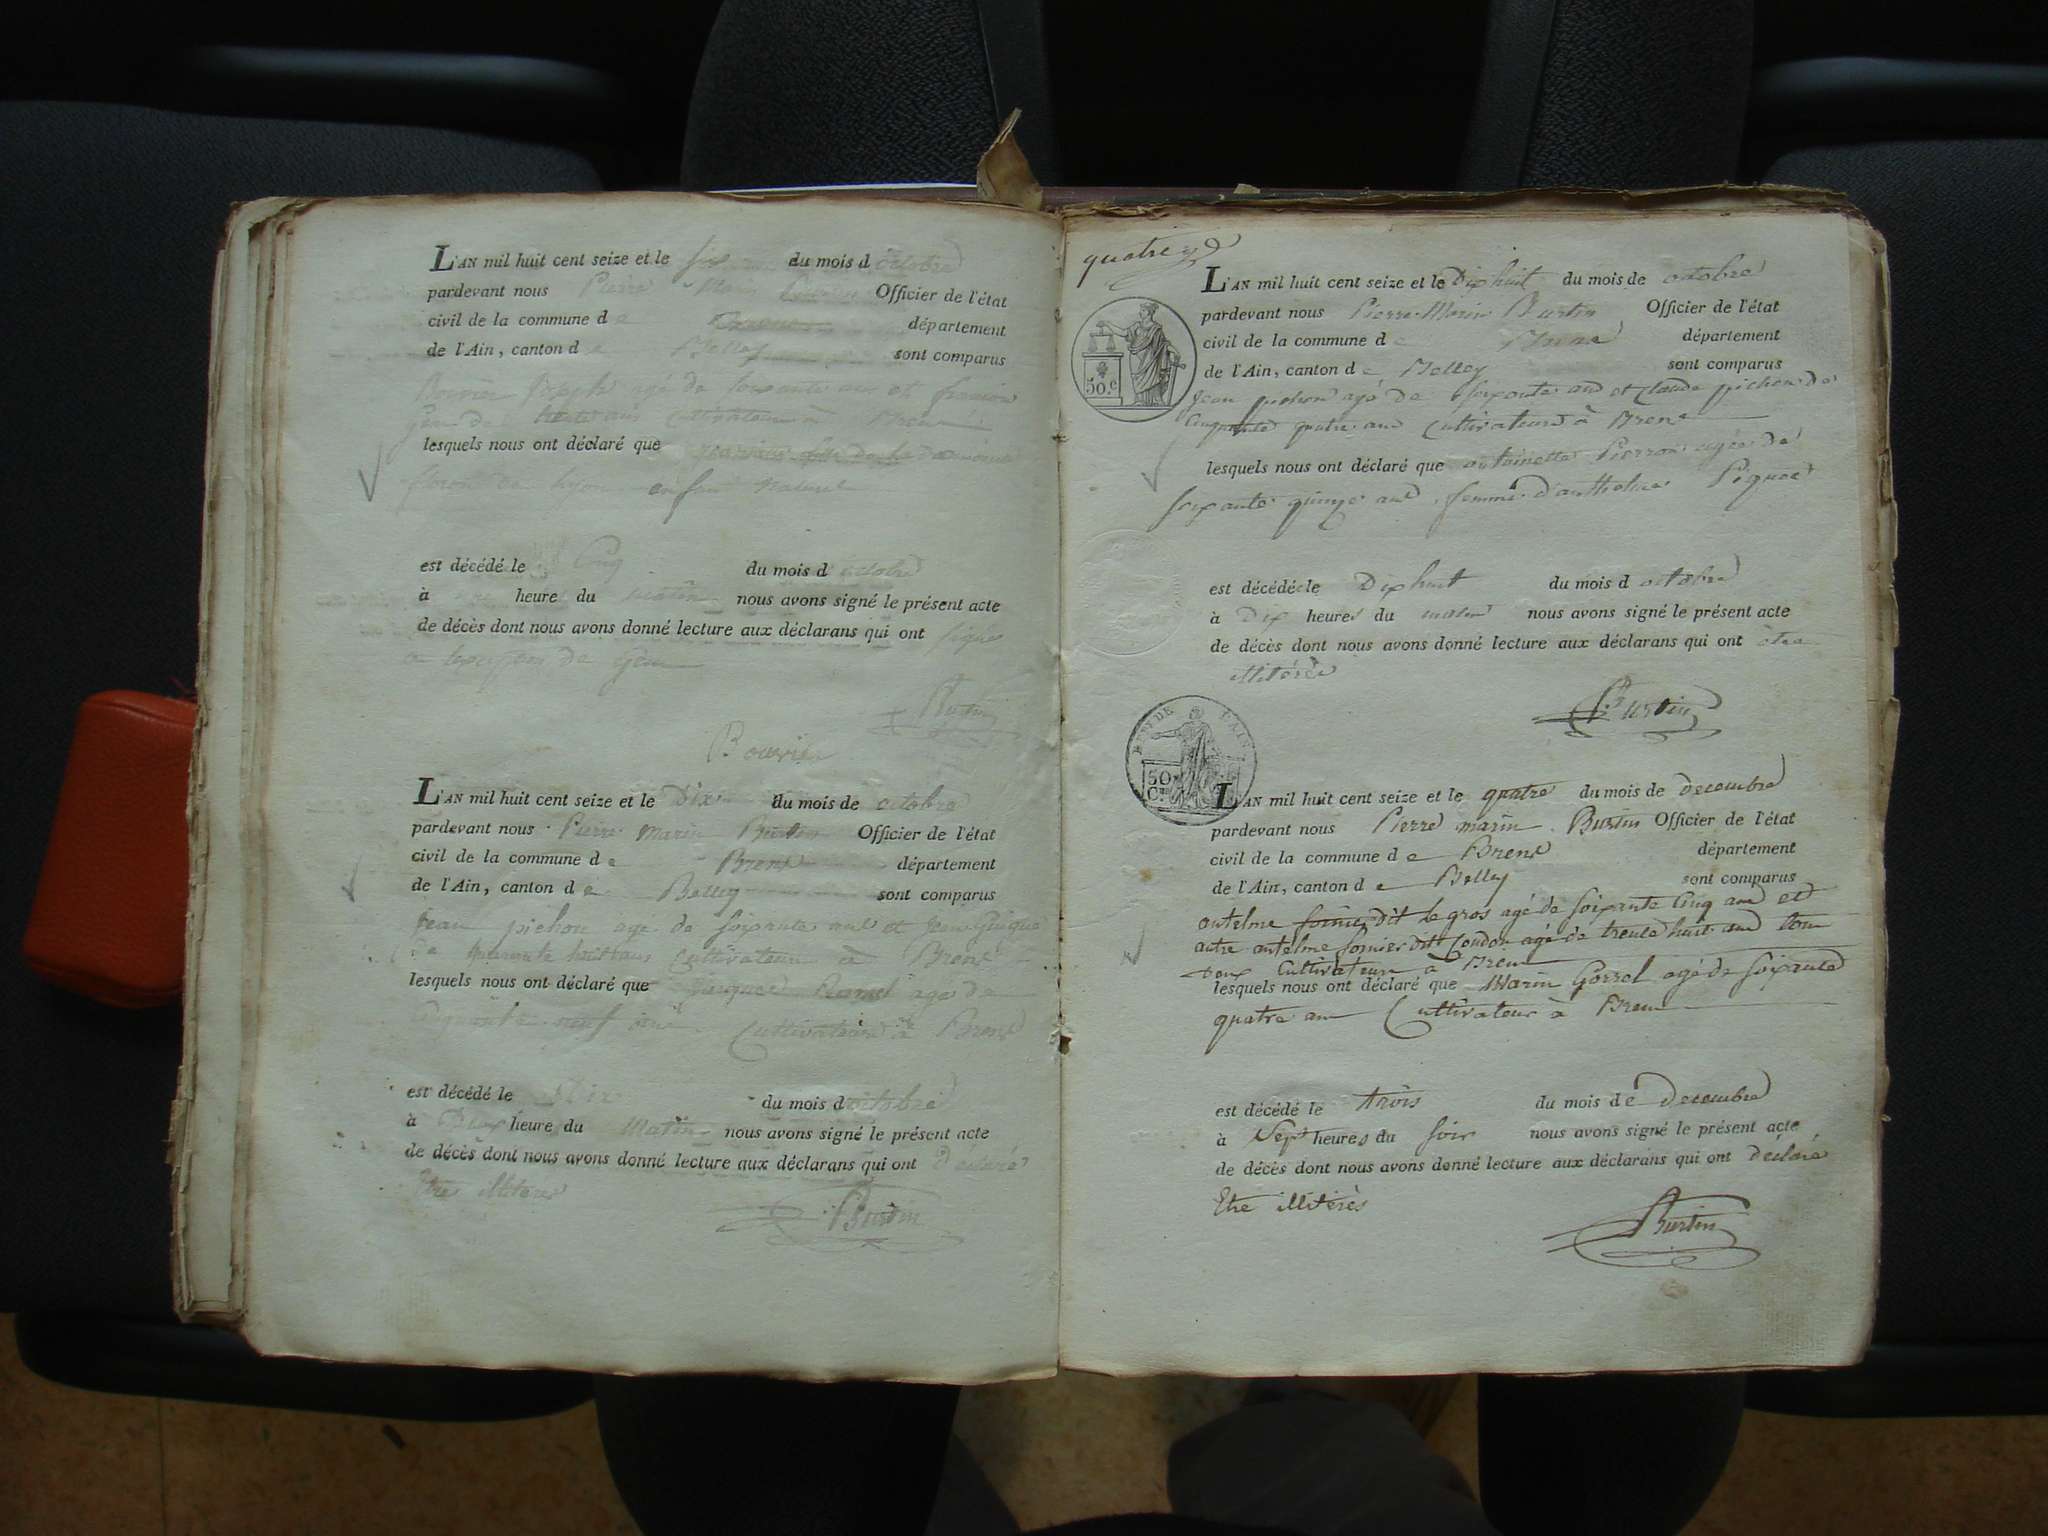 L'AN mil huit cent seize et le six du mois d octobre
pardevant nous Pierre Marin Officier de l'état
civil de la commune de département
de l'Ain, canton de Belley sont comparus
Bouvier Joseph agé de soixante ans et
cultivateurs à Brens
lesquels nous ont déclaré que
de Lyon enfant naturel
est décédé le Cinq du mois d octobre
à heure du matin nous avons signé le présent acte
de décès dont nous avons donné lecture aux déclarans qui ont signé
Burtin
Bouvier
L'AN mil huit cent seize et le Dix du mois de octobre
pardevant nous Pierre Marin Burtin Officier de l'état
civil de la commune de Brens département
de l'Ain, canton de Belley sont comparus
Jean pichon agé de soixante ans et Jean
de quarante huit ans cultivateurs à Brens
lesquels nous ont déclaré que agé de
cinquante neuf ans Cultivateur à Brens
est décédé le Dix du mois d octobre
à Deux heure du Matin nous avons signé le présent acte
de décès dont nous avons donné lecture aux déclarans qui ont declaré
Etre illiterés
Burtin
quatre
50.c
L'AN mil huit cent seize et le Dix huit du mois de octobre
pardevant nous Pierre Marin Burtin Officier de l'état
civil de la commune de Brens département
de l'Ain, canton de Belley sont comparus
Jean pichon agé de soixante ans et Claude pichon de
Cinquante quatre ans Cultivateurs à Brens
lesquels nous ont déclaré que antoinette Pierron agée de
soixante quinze ans femme d'anthelme Piquet
est décédée le Dix huit du mois d octobre
à Dix heures du matin nous avons signé le présent acte
de décès dont nous avons donné lecture aux déclarans qui ont être
illitérés
Burtin
DEPT DE L'AIN
50
C.es
L'AN mil huit cent seize et le quatre du mois de decembre
pardevant nous Pierre marin Burtin Officier de l'état
civil de la commune de Brens département
de l'Ain, canton de Belley sont comparus
antelme fornier dit le gros agé de soixante Cinq ans et
autre antelme fornier dit Coudon agé de trente huit ans tous
deux Cultivateurs à Brens
lesquels nous ont déclaré que Marin Gorrel agé de soixante
quatre ans Cultivateur à Brens
est décédé le trois du mois de Decembre
à Sept heures du soir nous avons signé le présent acte
de décès dont nous avons donné lecture aux déclarans qui ont déclaré
Etre illitérés
Burtin